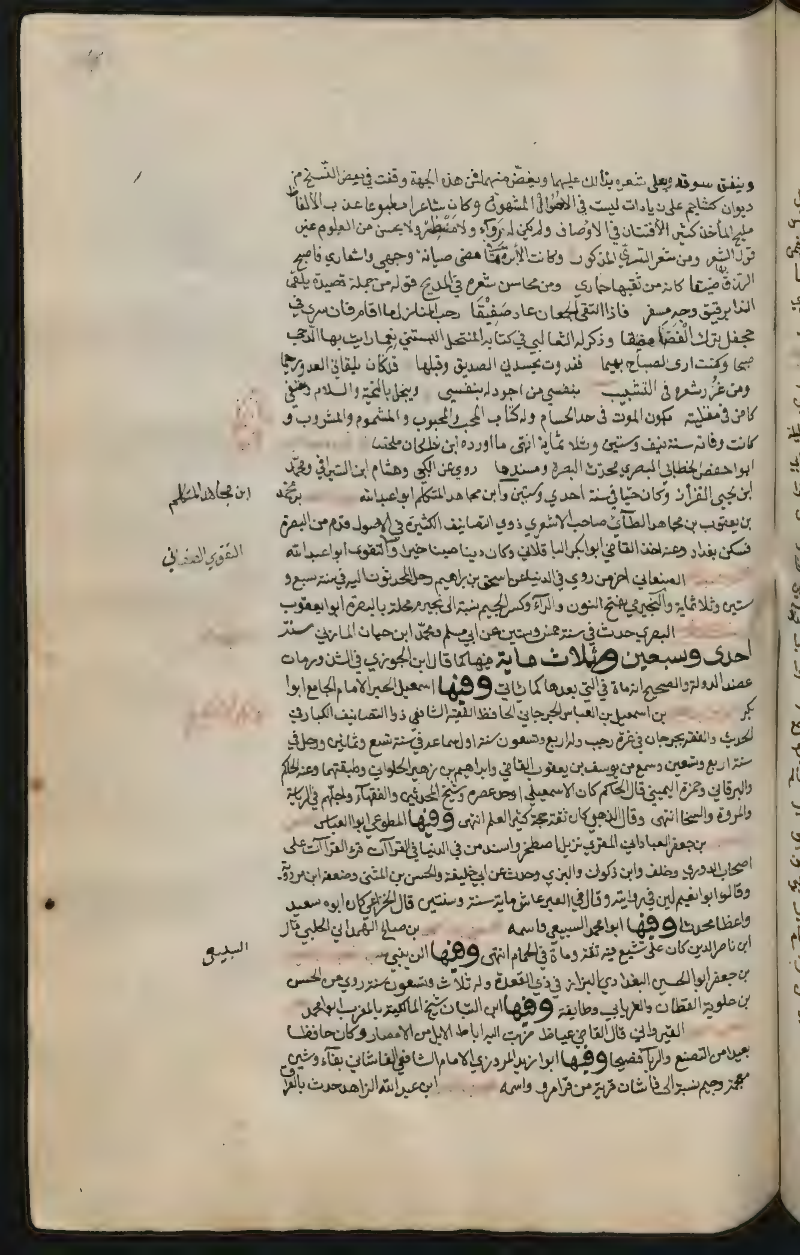 وينفق سوقه ويغلي شعره بذلك عليهما ويغض منهما فمن هذه الجهة وقفت في بعض النسخ من
ديوان كشاجم على زيادات ليست في الاصول المشهورة وكان شاعرا مطبوعا عذب الألفاظ
مليح المأخذ كثير الأفتنان في الاوصاف ولم يكن له رواء ولا منظر ولا يحسن من العلوم غير
قول الشعر ومن شعر السري المذكور وكانت الأبرة فيما مضى صيانة وجهي واشعاري فاصبح
الرزق بها ضيقا كانه من ثقبها جاري ومن محاسن شعره في المديح قوله من جملة قصيدة يلقى
الندا برقيق وجه مسفر فاذا التقى الجمعان عاد صفيقا رحب المنازل ما اقام فان سرى في
جحفل ترك الفضا مضيقا وذكر له الثعالبي في كتابه المنتحل
صبحا وكنت ارى الصباح بهيما فغدوت يحسدني الصديق وقبلها قد كان يلقاني العدو رحيما
ومن غرر شعره في التشبيب بنفسي من اجود له بنفسي ويبخل بالتحية والسلام وحتفي
كامن في مقلتيه كمون الموت في حد الحسام وله كتاب المحب والمحبوب والمشموم والمشروب و
كانت وفاته سنة نيف وستين وثلاثماية انتهى ما اورده ابن خلكان ملخصا
ابو احفص الخطابي البصري محدث البصرة ومسندها روى عن الكجي وهشام ابن السيرافي ومحمد
ابن يحيى القزاز وكان حيا في سنة احدى وستين وابن مجاهد المتكلم ابو عبدالله بن محمد
بن يعقوب بن مجاهد الطائي صاحب الاشعري ذوي التصانيف الكثيرة في الاصول قدم من البصرة
فسكن بغداد وعنه اخذ القاضي ابو ابكر الباقلاني وكان دينا صينا خيرا والنقوى ابو اعبدالله
الصنعاني اخر من روى في الدنيا عن اسحق بن ابراهيم رحل المحدثون اليه في سنة سبع و
ستين وثلاثماية والنجيرمي بفتح النون والراء وكسر الجيم نسبة الى نجيرم محلة بالبصرة ابو ايعقوب
البصري حدث في سنة خمس وستين عن ابي مسلم ومحمد ابن حيان المازني سنة
احدى وسبعين وثلاث ماية فيها كما قال ابن الجوزي في الشذور مات
عضد الدولة والصحيح انه مات في التي بعدها كما يأتي وفيها اسمعيل الحبر الامام الجامع ابو ا
بكر بن اسمعيل بن العباس الجرجاني الحافظ الفقيه الشافعي ذو التصانيف الكبار في
الحديث والفقه بجرجان في غرة رجب وله اربع وتسعون سنة اول سماعه في سنة تسع وثمانين ورحل في
سنة اربع وتسعين وسمع من يوسف بن يعقوب القاضي وابراهيم بن زهير الحلواني وطبقتهما وعنه الحاكم
والبرقاني وحمزة اليمني قال الحاكم كان الاسمعيلي اوحد عصره وشيخ المحدثين والفقهاء واجلهم في الرياسة
والمروة والسخا انتهى وقال الذهبي كان ثقة حجة كثير العلم انتهى وفيها المطوعي ابو العباس
بن جعفر العباداني المقري نزيل اصطخر واسند من في الدنيا في القراات قرا القراات على
اصحاب الدوري وخلف وابن ذكوان والبزي وحدث عن ابي خليفة والحسن بن المثنى وضعفه ابن مردة
وقال ابو انعيم لين في روايته وقال في العبر عاش ماية سنة وسنتين قال الخزاعي كان ابوه سعيد
واعظا محدثا وفيها ابو امحمد السبيعي واسمه بن صالح الهمداني الحلبي قال
ابن ناصر الدين كان على تشيع فيه ثقة ومات في الحمام انتهى وفيها الزينبي
بن جعفر ابو الحسين البغدادي البزاز في ذي القعدة وله ثلاث وتسعون سنة روى عن الحسن
بن علوية القطان والفريابي وطايفة وفيها ابن التبان شيخ المالكية بالمغرب ابو امحمد
القيرواني قال القاضي عياض ضربت اليه اباط الابل من الامصار وكان حافظا
بعيدا من التصنع والرياء فصيحا وفيها ابو ازيد المروزي الامام الشافعي الفاشاني بفاء وشين
معجمة وجيم نسبة الى فاشان قرية من قرا مرو واسمه ابن عبدالله الزاهد حدث بالعراق
ابن مجاهد المتكلم
النقوي الصنعاني
السبيعي